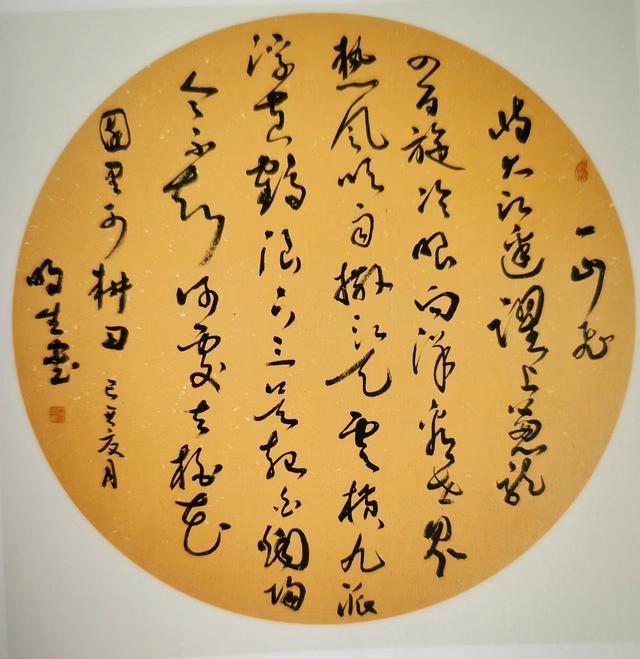 一山飞
峙大江边跃上葱茏
四百旋冷眼向洋看世界
热风吹雨撒江天云横九派
浮黄鹤浪下三吴起白烟陶
令不知何处去桃花
園里可耕田 己亥夏月
生书